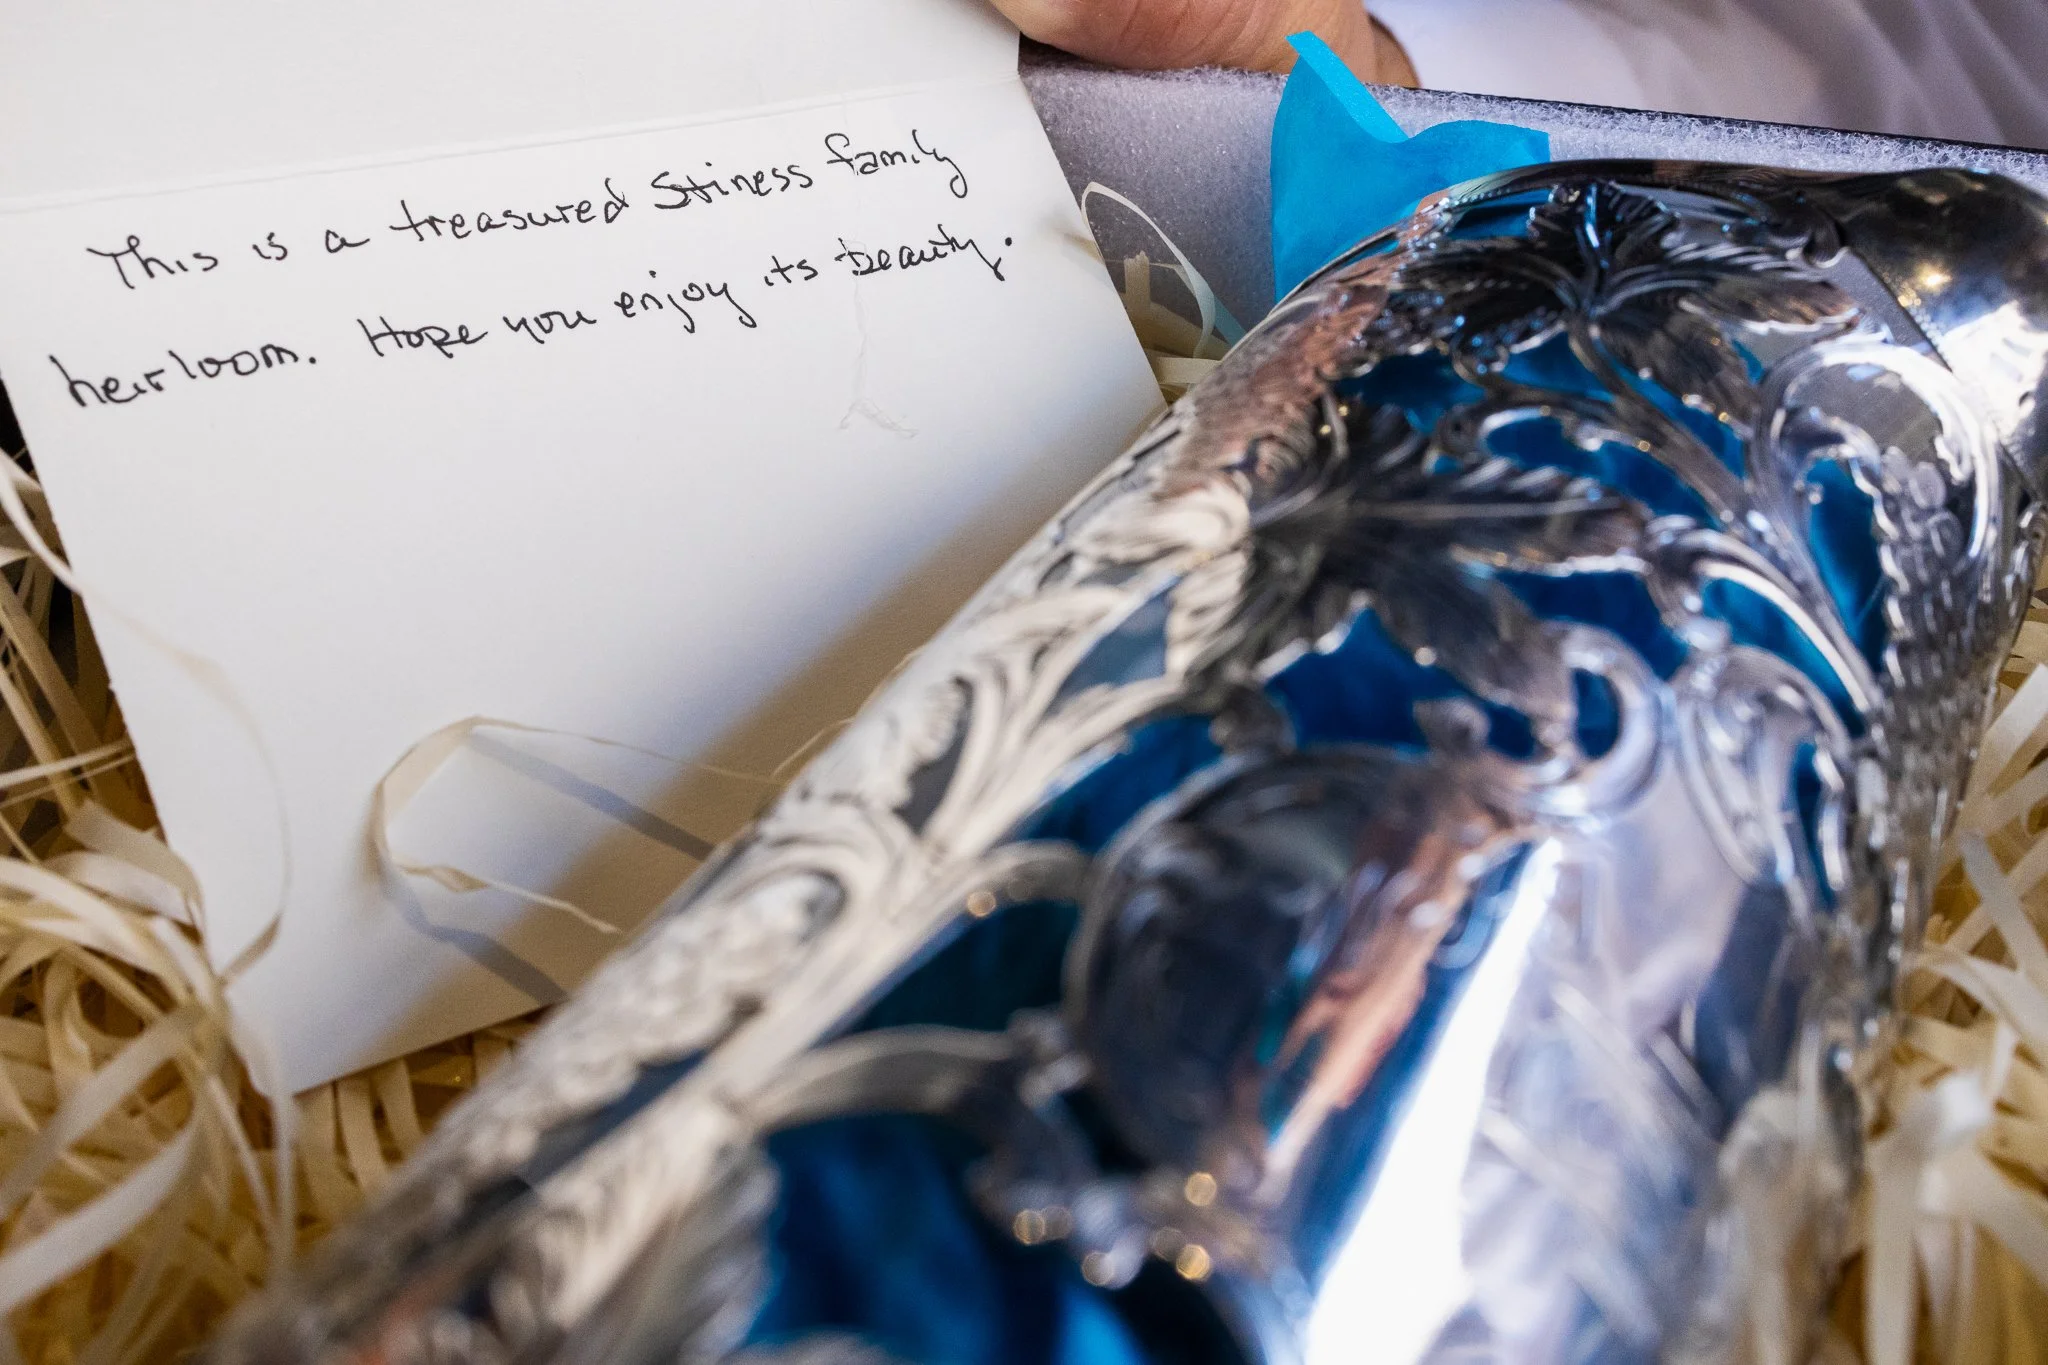 This is a treasured Stiness family
heirloom. Hope you enjoy its beauty.